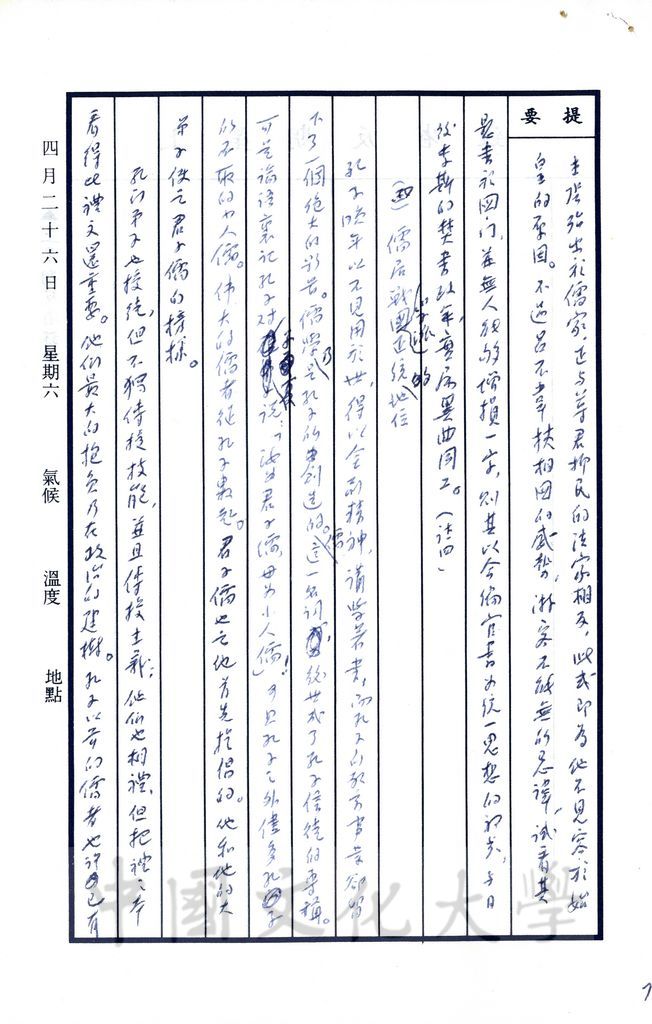 提要
主張殆出於儒家，正与尊君抑民的法家相反，此或即為他不見容於始
皇的原因。不過呂不韋挾相國的威勢，游客不能無的忌諱，試看其
懸書於國门，并無人能夠增損一字，则其以合编官書為統一思想的初步，与日
後李斯的焚書政策，實屬異曲同工。（註四）
（四）儒居戰國學派的正統地位
孔子晚年以不見用於世，得以全副精神，講學著書，而孔子的教育事業卻留
下了一個绝大的影响。儒學乃是孔子所創造的。「儒」這一名詞，後世成了孔子信徒的專稱。
可是論語裏記孔子对子夏說：「汝為君子儒，毋為小人儒」！可見孔子之外儘多孔子
所不取的小人儒。伟大的儒者從孔子數起。君子儒也是他首先提倡的。他和他的大
弟子便是君子儒的榜樣。
孔门弟子也授徒，但不獨傳授技能，並且傳授主義；他们也相禮，但把禮之本
看得比禮文還重要。他们最大的抱负乃在政治的建樹。孔子以前的儒者也許已有
四月二十六日 星期六 氣候 溫度 地點
中國文化大學
7